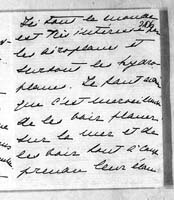 tout le monde
est très intéressé
les aéroplanes et
surtout les hydro
planes. Il faut
que c'est merveilleux
de les voir planer
sur la mer et de
les voir tout d'un
prendre leur élan